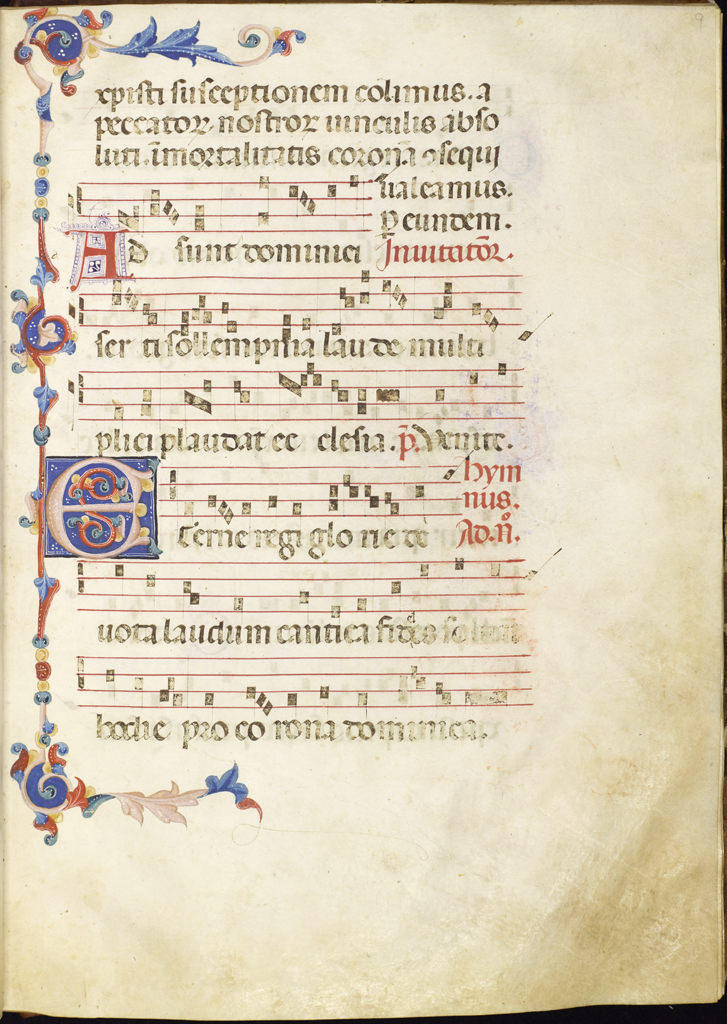 xpisti susceptionem colimus. a
peccatoꝝ nostroꝝ uinculis abso
luti. ĩmortalitatis coronã ꝯsequi
ualeamus.
ꝑ eundem.
AD sunt dominici Inuitatõr.
ser ti sollempnia lau de multi
plici plaudat ec clesia. p̃. Uenite.
hym
nus.
ETerne regi glo rie de Ad. ñ.
uota laudum cantica fidẽs
hodie pro co rona dominica.